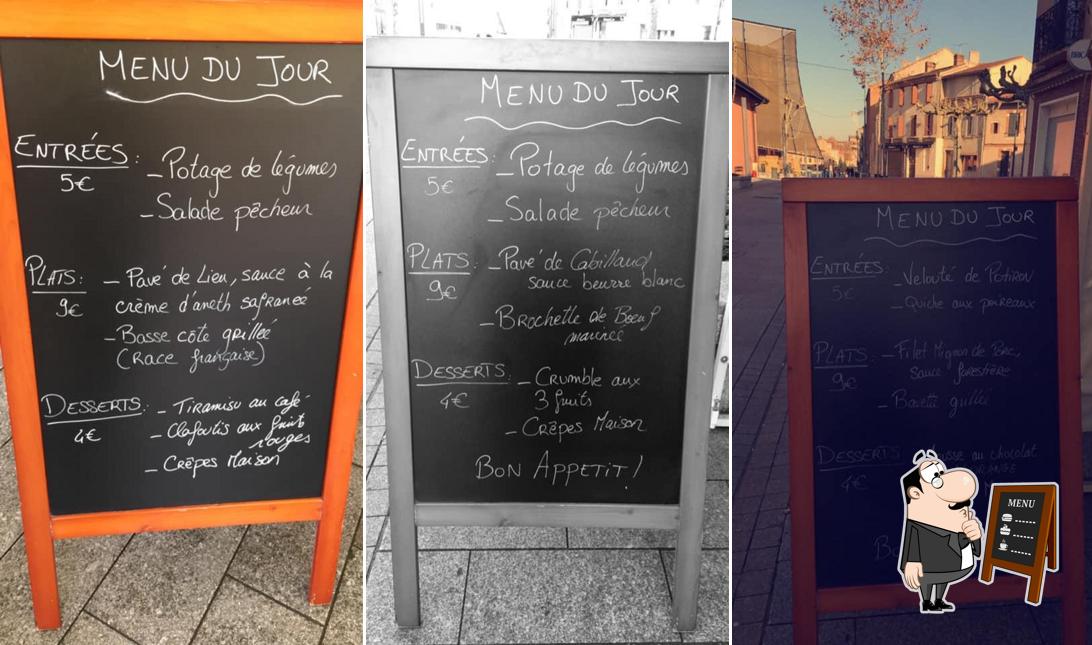 MENU DU JOUR
ENTRÉES :
5€
- Potage de légumes
- Salade pêcheur
PLATS :
9€
- Pavé de Lieu, sauce à la
crème d'aneth safranée
- Basse côte grillée
(Race française)
DESSERTS :
4€
- Tiramisu au café
- Clafoutis aux fruits
rouges
- Crêpes Maison
MENU DU JOUR
ENTRÉES :
5€
- Potage de légumes
- Salade pêcheur
PLATS :
9€
- Pavé de Cabillaud
sauce beurre blanc
- Brochette de Bœuf
marinée
DESSERTS :
4€
- Crumble aux
3 fruits
- Crêpes Maison
BON APPETIT !
MENU DU JOUR
ENTRÉES :
5€
- Velouté de Potiron
- Quiche aux poireaux
PLATS :
9€
- Filet Mignon de Porc,
sauce forestière
- Bavette grillée
DESSERTS
4€
au chocolat
MENU